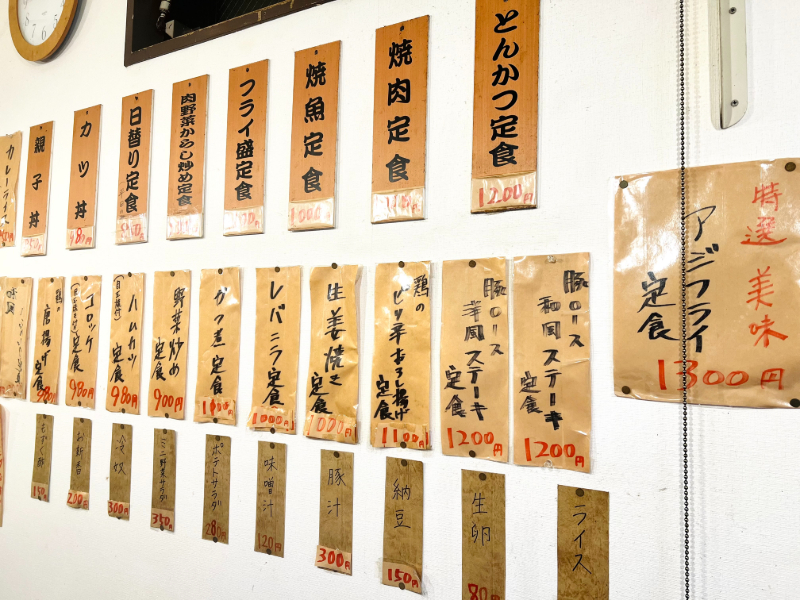 とんかつ定食
1200円
焼肉定食
焼魚定食
1000円
フライ盛定食
肉野菜からし炒め定食
日替り定食
カツ丼
980円
親子丼
カレーライス
特選 美味
アジフライ
定食
1300円
豚ロース
和風ステーキ
定食
1200円
豚ロース
洋風ステーキ
定食
1200円
鶏の
ピリ辛おろし揚げ
定食
1100円
生姜焼き
定食
1000円
レバニラ定食
1000円
かつ煮
定食
野菜炒め
定食
900円
ハムカツ
定食
980円
コロッケ
定食
980円
鶏の
唐揚げ
定食
980円
ライス
生卵
80円
納豆
150円
豚汁
300円
味噌汁
120円
ポテトサラダ
280円
ミニ野菜サラダ
350円
冷奴
300円
お新香
200円
もずく酢
150円